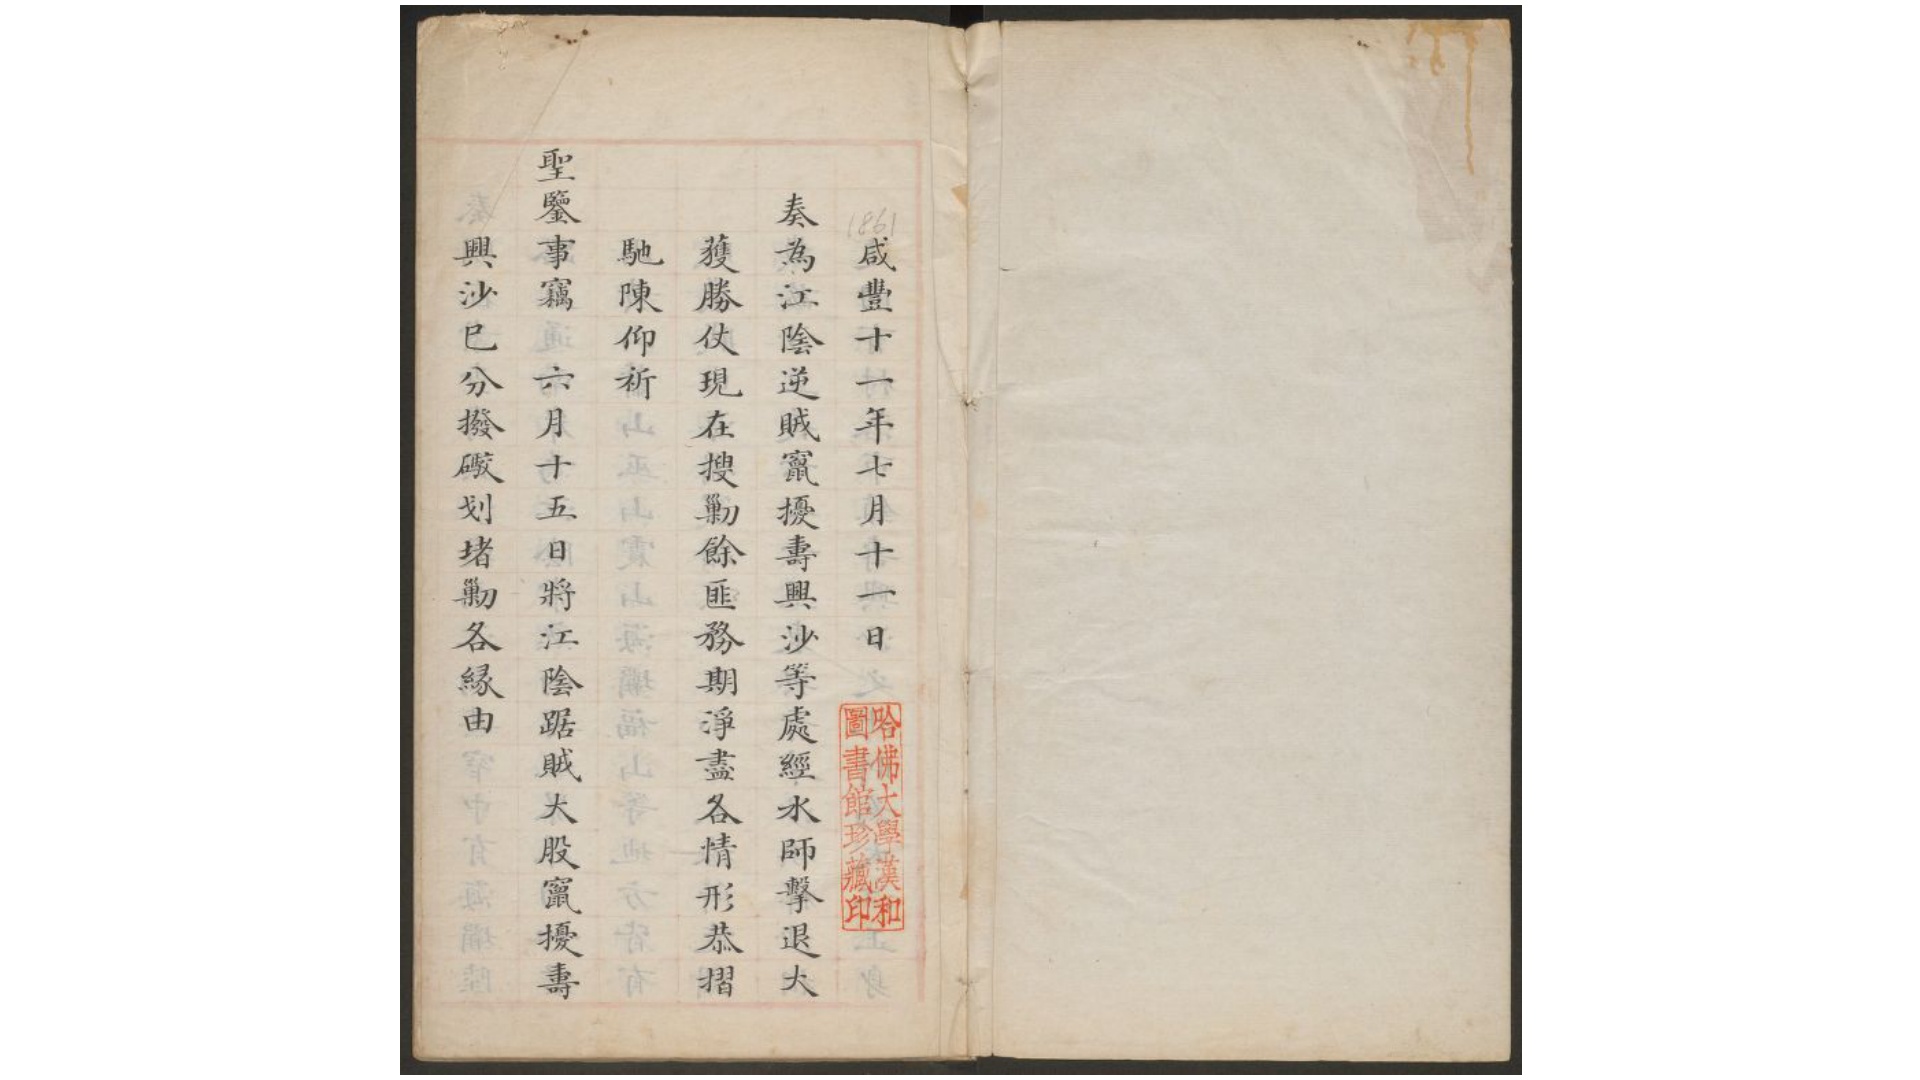 1861
咸豐十一年七月十一日
奏為江陰逆賊竄擾壽興沙等處經水師擊退大
獲勝仗現在搜勦餘匪務期淨盡各情形恭摺
馳陳仰祈
聖鑒事竊六月十五日將江陰踞賊大股竄擾壽
興沙巳分撥礮划堵勦各緣由
哈佛大學漢和
圖書館珍藏印